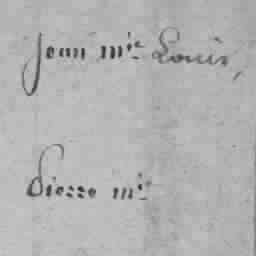 Jean m.ie Louis,
Pierre m.ie